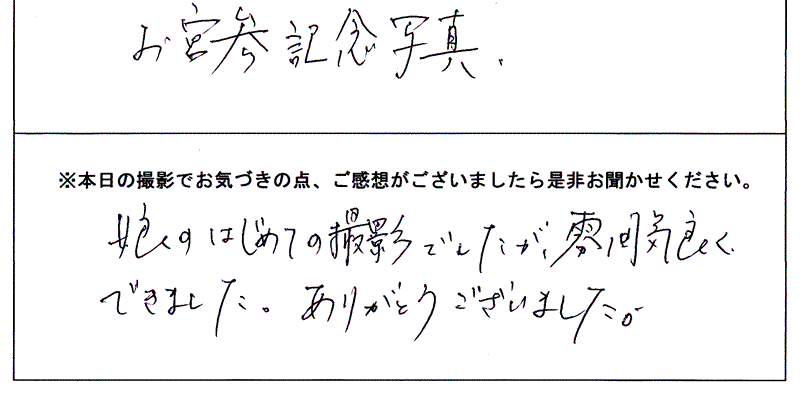 お宮参記念写真.
※本日の撮影でお気づきの点、ご感想がございましたら是非お聞かせください。
娘のはじめての撮影でしたが、雰囲気良く
できました。ありがとうございました。